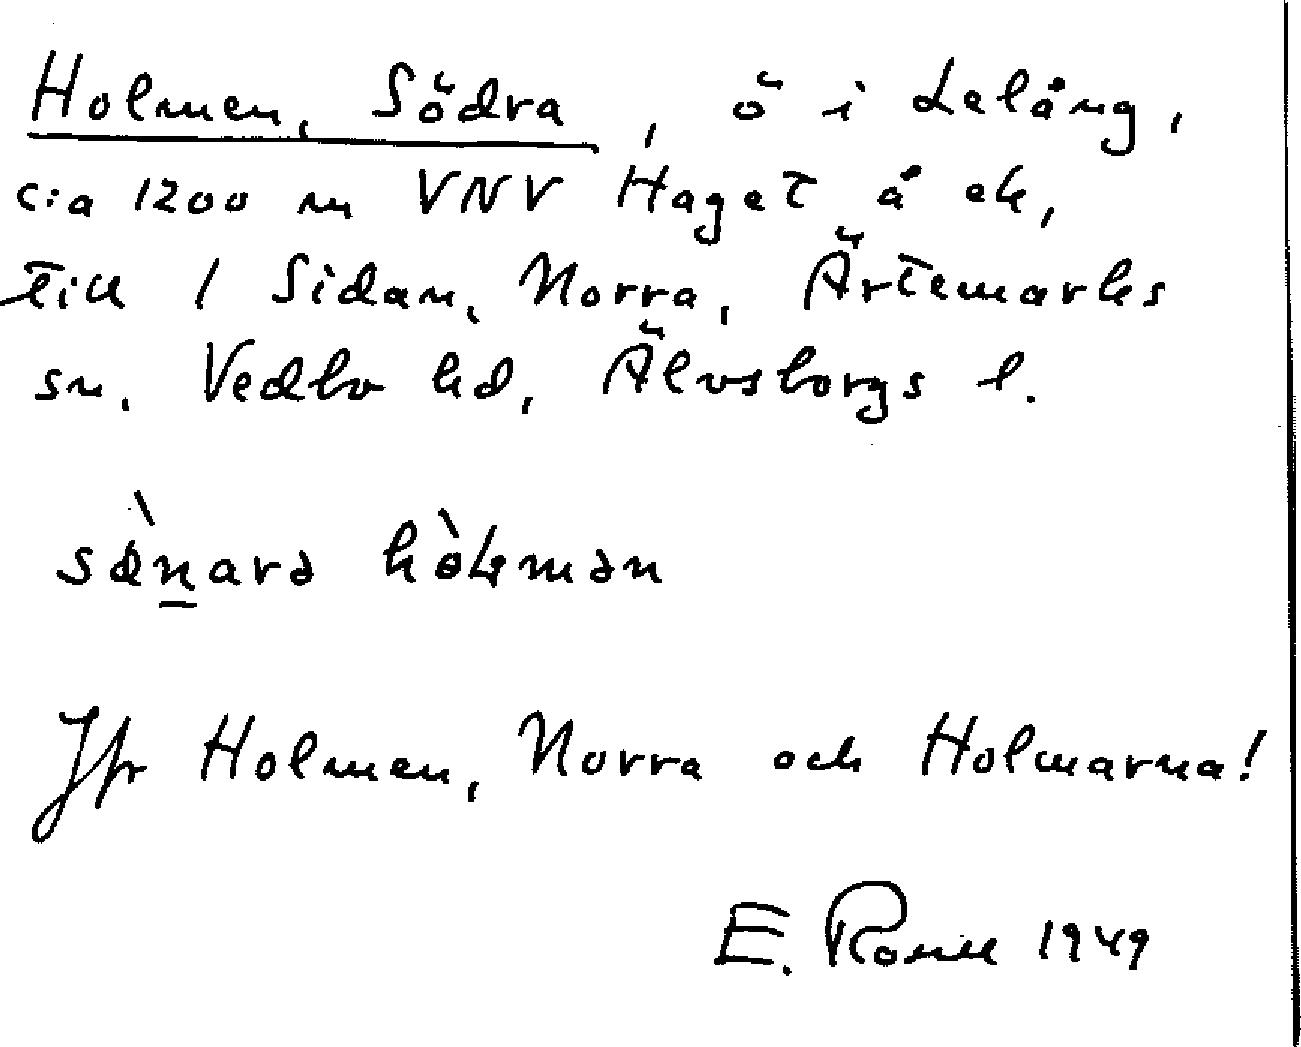 Holmen, Södra, ö i Lelång,
c:a 1200 m VNV Haget å ek,
till 1 Sidan, Norra, Ärtemarks
sn. Vedbo hd, Älvsborgs l.
sæ̀nara hòlman
Jfr Holmen, Norra och Holmarna!
E. 1949